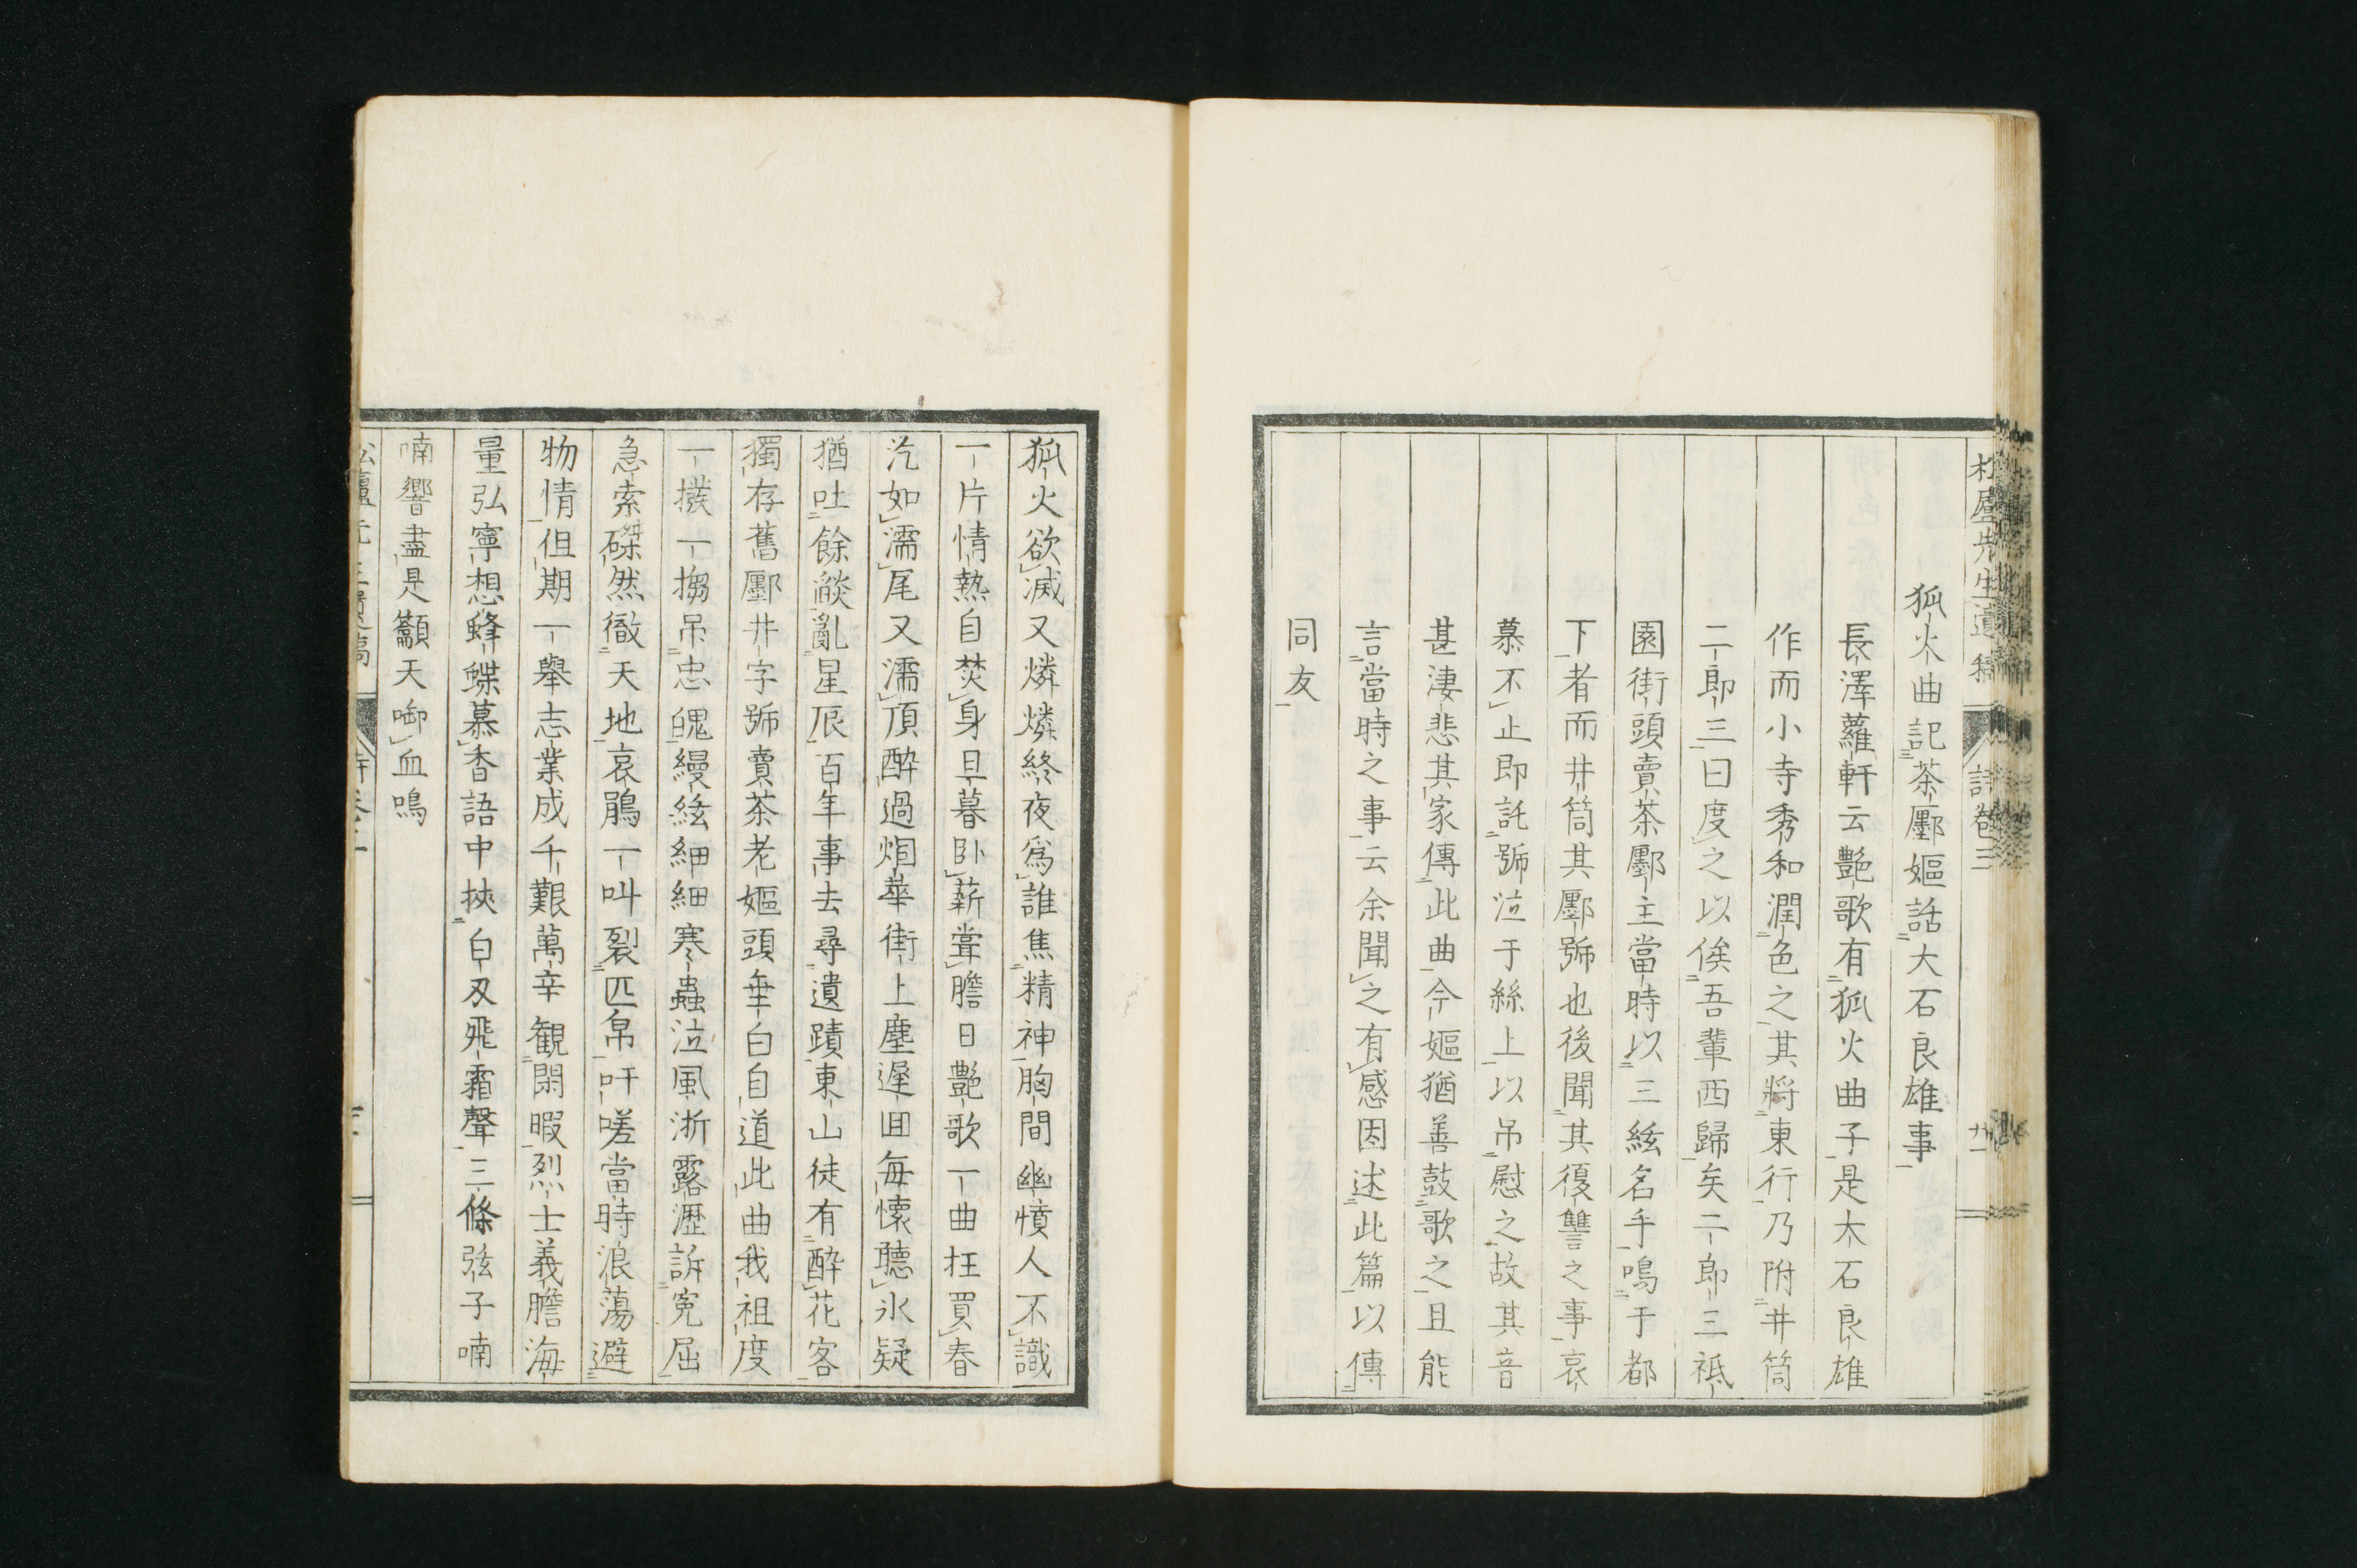 狐火曲記茶鄽嫗話大石良雄事
長澤蘿軒云艶歌有狐火曲子是大石良雄
作而小寺秀和潤色之其將東行乃附井筒
二郎三曰度之以俟吾輩西歸矣二郎三祗
園街頭賣茶鄽主當時以三絃名手鳴于都
下者而井筒其鄽號也後聞其復讐之事哀
慕不止即託號泣于絲上以吊慰之故其音
甚淒悲其家傳此曲今嫗猶善鼓歌之且能
言當時之事云余聞之有感因述此篇以傳
同友
詩卷三
狐火欲滅又燐燐終夜爲誰焦精神胸間幽憤人不識
一片情熱自焚身旦暮臥薪甞膽日艶歌一曲狂買春
汔如濡尾又濡頂酔過烟華街上塵遲回每懷聽氷疑
猶吐餘燄亂星辰百年事去尋遺蹟東山徒有酔花客
獨存舊鄽井字號賣茶老嫗頭垂白自道此曲我祖度
一撥一搊吊忠魄縵絃細細寒蟲泣風淅露瀝訴冤屈
急索磔然徹天地哀鵑一叫裂匹帛吁嗟當時浪蕩避
物情但期一擧志業成千艱萬辛觀閑暇烈士義膽海
量弘寧想蜂蝶慕香語中挾白刃飛霜聲三條弦子喃
喃響盡是籲天啣血鳴